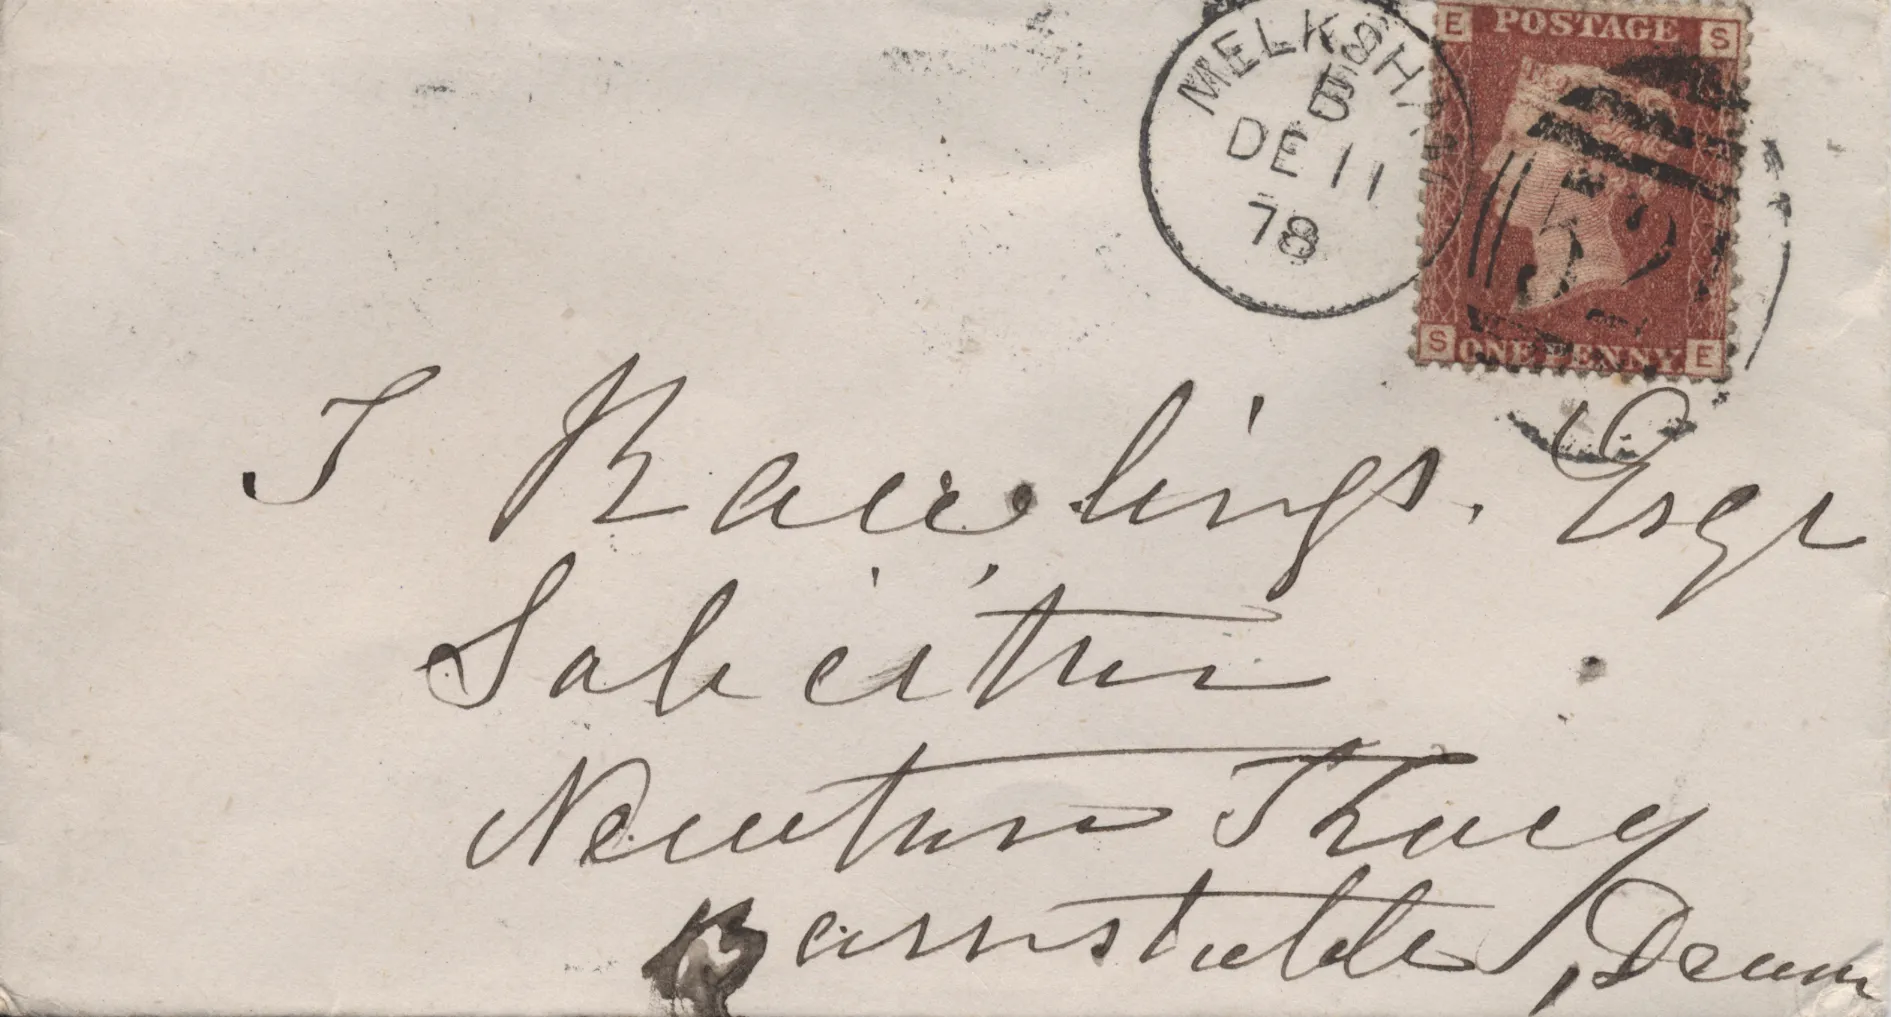 E POSTAGE S
MELKSHAM
B
DE 11
78
52
S ONE PENNY E
T Rawlings. Esqr
Solicitor
Newton Tracy
Barnstable, Devon